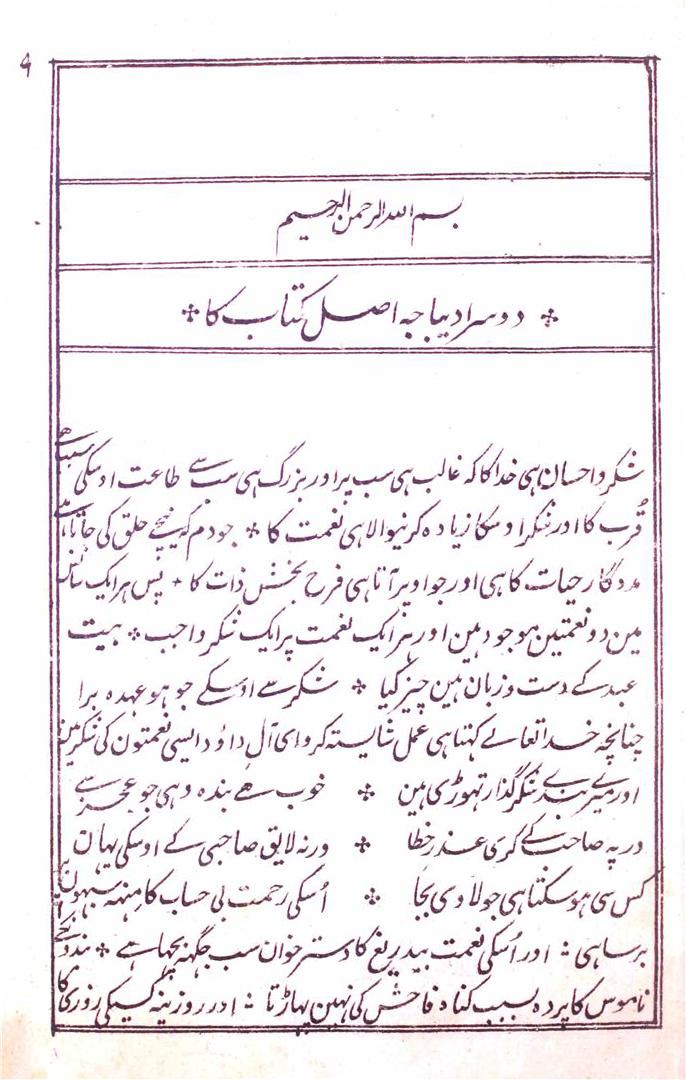 ۹
بسم الله الرحمن الرحیم
دوسرا دیباجہ اصل کتاب کا
شکر و احسان ہی خدا کا کہ غالب ہی سب پر اور بزرگ ہی سب سے طاعت اوسکی سبب ہے
قُرب کا اور شکر اوسکا زیادہ کرنیوالا ہی نعمت کا جو دم کہ نیچے حلق کی جاتا ہے
مددگار حیات کا ہی اور جو اوپر آتا ہی فرح بخشش ذات کا پس ہر ایک سانس
مین دو نعمتین موجود ہین اور ہر ایک نعمت پر ایک شکر واجب بیت
عبد کے دست و زبان ہین چیز کیا شکر سے اوسکے جو ہو عہدہ برا
چنانچہ خدا تعالے کہتا ہی عمل شایستہ کرو ای آل داؤد ایسی نعمتون کی شکر مین
اور میرے بندے شکر گذار تہوڑی ہین خوب ہے بندہ وہی جو عجز سے
در پہ صاحب کے کری عذر خطا ورنہ لایق صاحبی کے اوسکی یہان
کس سی ہو سکتا ہی جو لاوی بجا اُسکی رحمت بی حساب کا مِنہہ سبہون پر
برسا ہی : اور اُسکی نعمت بیدریغ کا دسترخوان سب جگہہ بچہا ہے بندونکے
ناموس کا پردہ بسبب گناہ فاحش کی نہین پہاڑتا : اور روزینہ کسیکی روزی کا